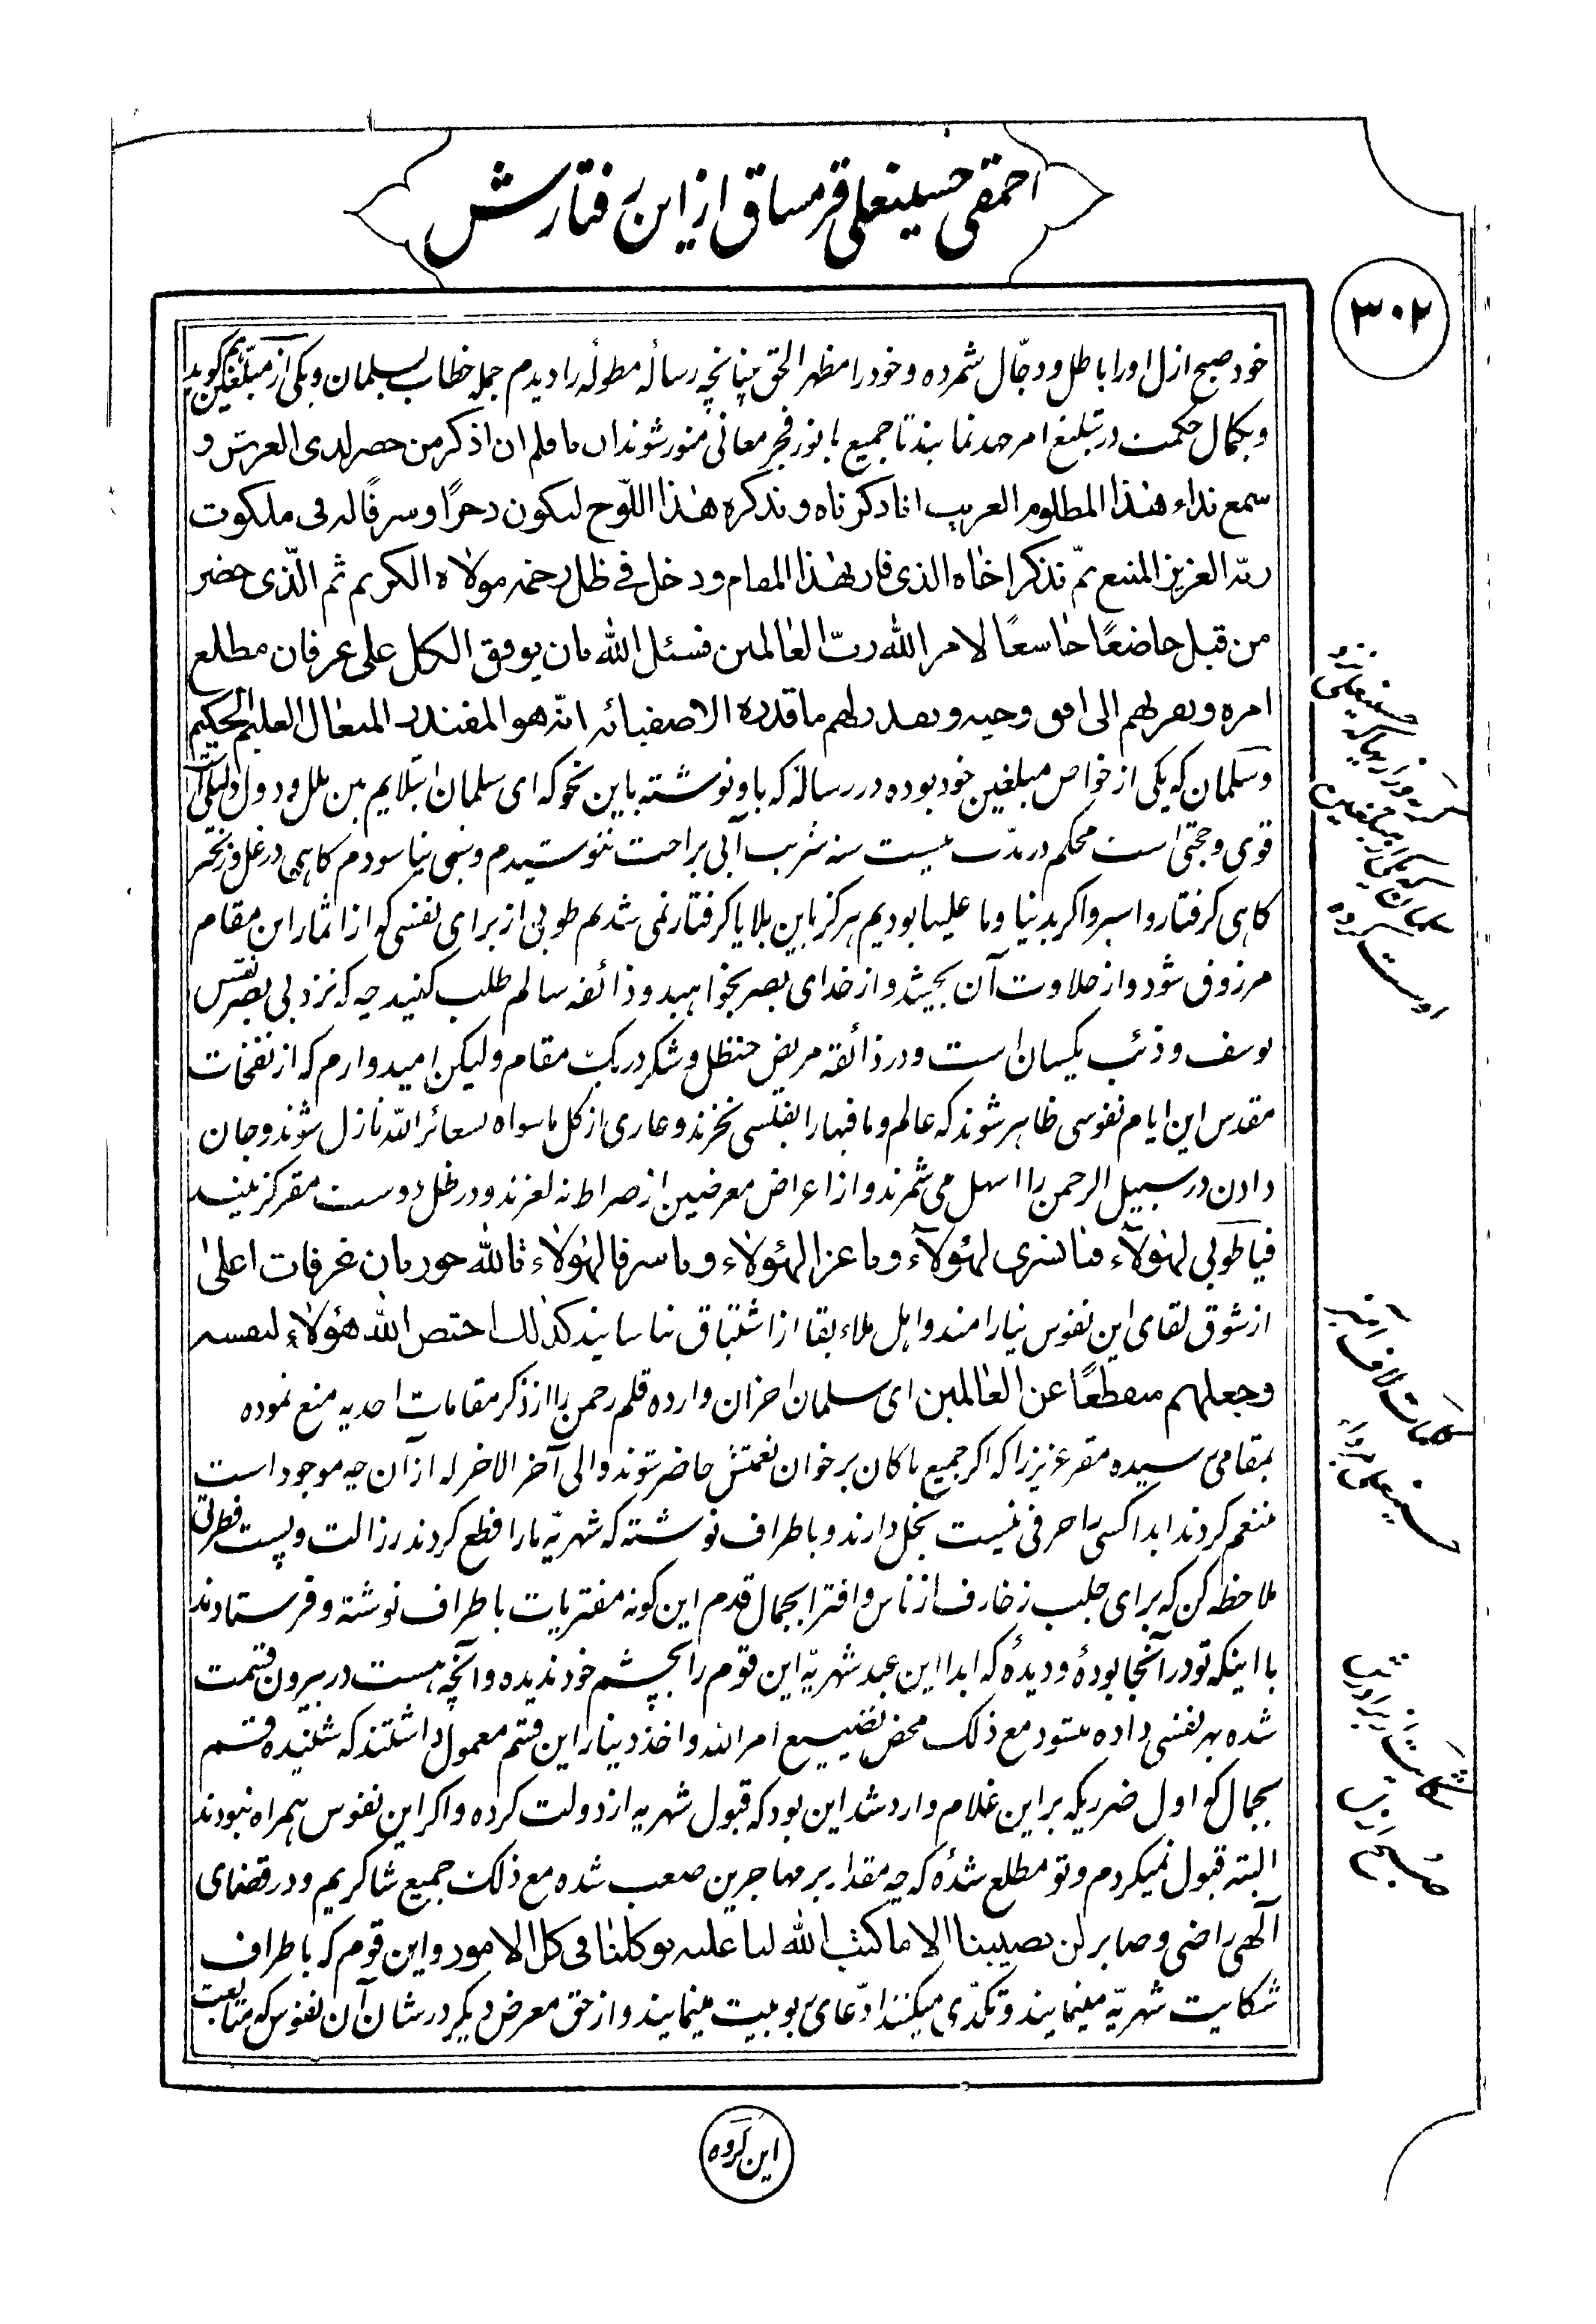 احمقی حسینعلی قرمساق از این رفتارش
۳۰۲
خود صبح ازل اورا باطل و دجّال شمرده و خود را مظهر الحق چنانچه رسالهٔ مطوله را دیدم جمله خطاب بسلمان و یکی از مبلّغین هم گوید
و بکمال حکمت در تبلیغ امر جهد نمایند تا جمیع بانوار فجر معانی منور شوند ان یا قلم ان اذکر من حضر لدی العرش و
سمع نداء هذا المظلوم الغریب انا ذکرناه و نذکره هذا اللّوح لیکون ذخرًا و شرفًا له فی ملکوت
ربّه العزیز المنیع ثمّ نذکر اخاه الذی فاز بهذا المقام و دخل فی ظل رحمة مولاه الکریم ثم الّذی حضر
من قبل خاضعًا خاشعًا لامر الله ربّ العالمین فنسئل الله بان یوفق الکل علی عرفان مطلع
امره و یقربهم الی افق وحیه و یقدر لهم ما قدره لاصفیائه انّه هو المقتدر المتعال العلیم الحکیم
و سلمان که یکی از خواص مبلغین خود بوده در رسالهٔ که باو نوشته باین نحو که ای سلمان ابتلایم بین ملل و دول دلیلی است
قوی و حجتی است محکم در مدّت بیست سنه شربت آبی براحت ننوشیدم و شبی نیاسودم کاهی در غل و زنجیر
کاهی کرفتار و اسیر و اکر بدنیا و ما علیها بودیم هرکز باین بلایا کرفتار نمی شدیم طوبی از برای نفسی که از اثمار این مقام
مرزوق شود و از حلاوت آن بچشد و از خدای بصر بخواهید و ذائقه سالم طلب کنید چه که نزد بی بصر نقش
یوسف و ذئب یکسان است و در ذائقه مریض حنظل و شکر در یک مقام ولیکن امیدوارم که از نفحات
مقدس این ایام نفوسی ظاهر شوند که عالم و ما فیها را بفلسی نخرند و عاری از کل ما سواه بشعائر الله نازل شوند و جان
دادن در سبیل الرحمن را اسهل می شمرند و از اعراض معرضین از صراط نه لغزند و در ظل دوست مقر کزینند
فیا طوبی لهؤلآء فیا بشری لهؤلآء و یا عزا لهؤلاء و یا شرفا لهؤلاء تالله حوریان غرفات اعلی
از شوق لقای این نفوس نیارامند و اهل ملاء بقا از اشتیاق نیاسایند کذلک اختص الله هؤلاء لنفسه
و جعلهم منقطعًا عن العالمین ای سلمان احزان وارده قلم رحمن را از ذکر مقامات احدیه منع نموده
بمقامی رسیده مقر عزیز را که اکر جمیع ماکان بر خوان نعمتش حاضر شوند و الی آخر الاخر له از آن چه موجود است
متنعم کردند ابدا کسی را حرفی نیست بخل دارند و باطراف نوشته که شهریّه ما را قطع کردند رزالت و پست فطرتی
ملاحظه کن که برای جلب زخارف از ناس و افترا بجمال قدم این کونه مفتریات باطراف نوشته و فرستادند
با اینکه تو در آنجا بودهٔ و دیدهٔ که ابدا این عبد شهریّه این قوم را بچشم خود ندیده و آنچه هست در بیرون قسمت
شده بهر نفسی داده میشود مع ذلک محض تضییع امر الله و اخذ دینار این قسم معمول داشتند که شنیدهٔ قسم
بجمالی کو اول ضرریکه بر این غلام وارد شد این بود که قبول شهریه از دولت کرده و اکر این نفوس همراه نبودند
البته قبول نمیکردم و تو مطلع شدهٔ که چه مقدار بر مهاجرین صعب شده مع ذلک جمیع شاکریم و در قضای
آلهی راضی و صابر لن یصیبنا الا ما کتب الله لنا علیه توکلنا فی کل الامور و این قوم که باطراف
شکایت شهریّه مینمایند و تکدّی میکنند ادّعای ربوبیت مینمایند و از حق معرض دیکر در شان آن نفوس که متابعت
این کروه